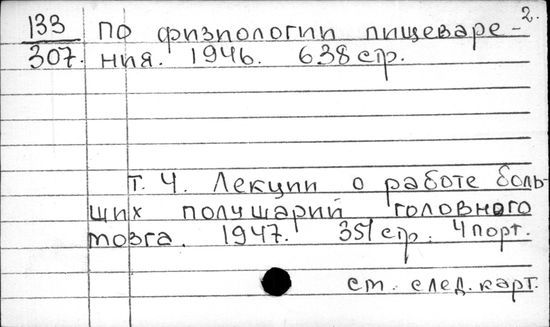 2.
133 по физиологии пищеваре-
307. ния. 1946. 638 стр.
т. 4. Лекции о работе боль-
ших полушарий головного
мозга. 1947. 351 стр. 4 порт.
см. след. карт.